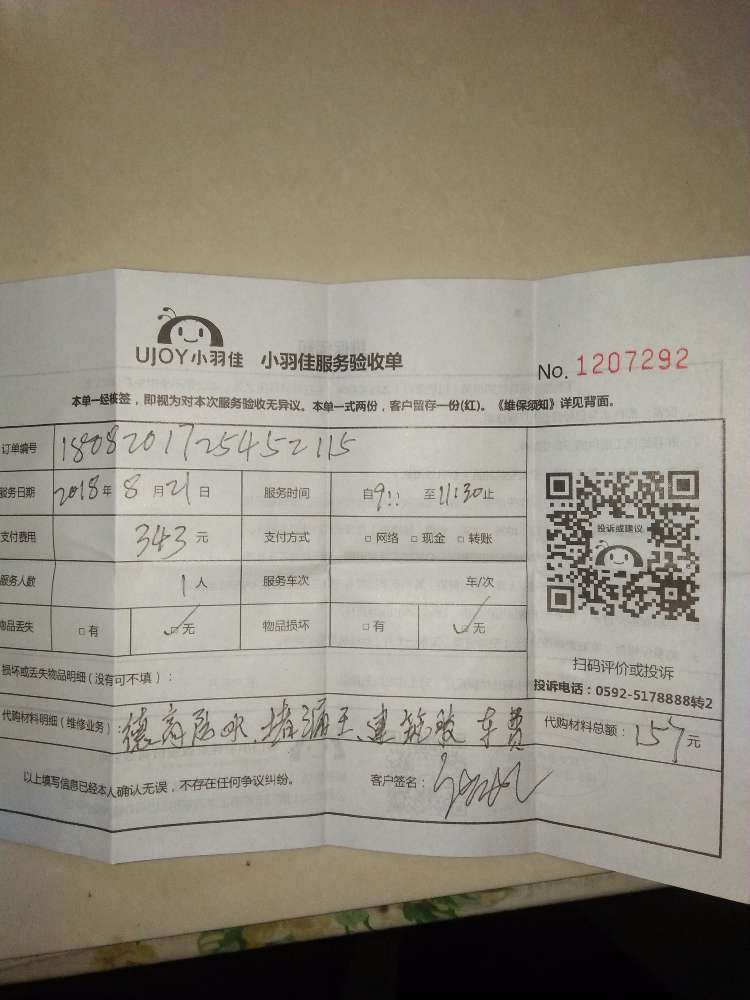 UJOY小羽佳 小羽佳服务验收单
No. 1207292
本单一经核签，即视为对本次服务验收无异议。本单一式两份，客户留存一份(红)。《维保须知》详见背面。
订单编号 1808201725452115
服务日期 2018年 8月21日 服务时间 自9:: 至11:30止
投诉或建议
支付费用 343元 支付方式 □网络 □现金 □转账
服务人数 1人 服务车次 车/次
物品丢失 □有 ☑无 物品损坏 □有 ☑无
扫码评价或投诉
损坏或丢失物品明细（没有可不填）：
投诉电话：0592-5178888转2
代购材料明细（维修业务） 德高防水、堵漏王、建筑胶 车费
代购材料总额：157元
以上填写信息已经本人确认无误，不存在任何争议纠纷。 客户签名：